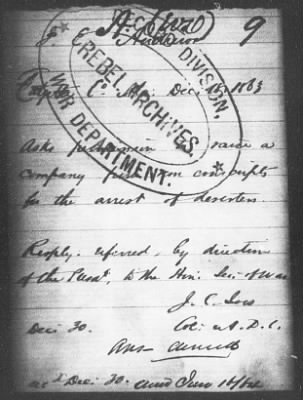 9
J. E. Anderson
C. Dec 15, 1863
REBEL ARCHIVES, DIVISION,
WAR DEPARTMENT.
Asks permission raise a
company from non conscripts
for the arrest of deserters
Resply. referred, by direction
of the Presdt, to the Hon. Sec. of War
J. C. Ives
Dec: 30. Col: & A. D. C.
Ans
Dec: 30. June 14/64